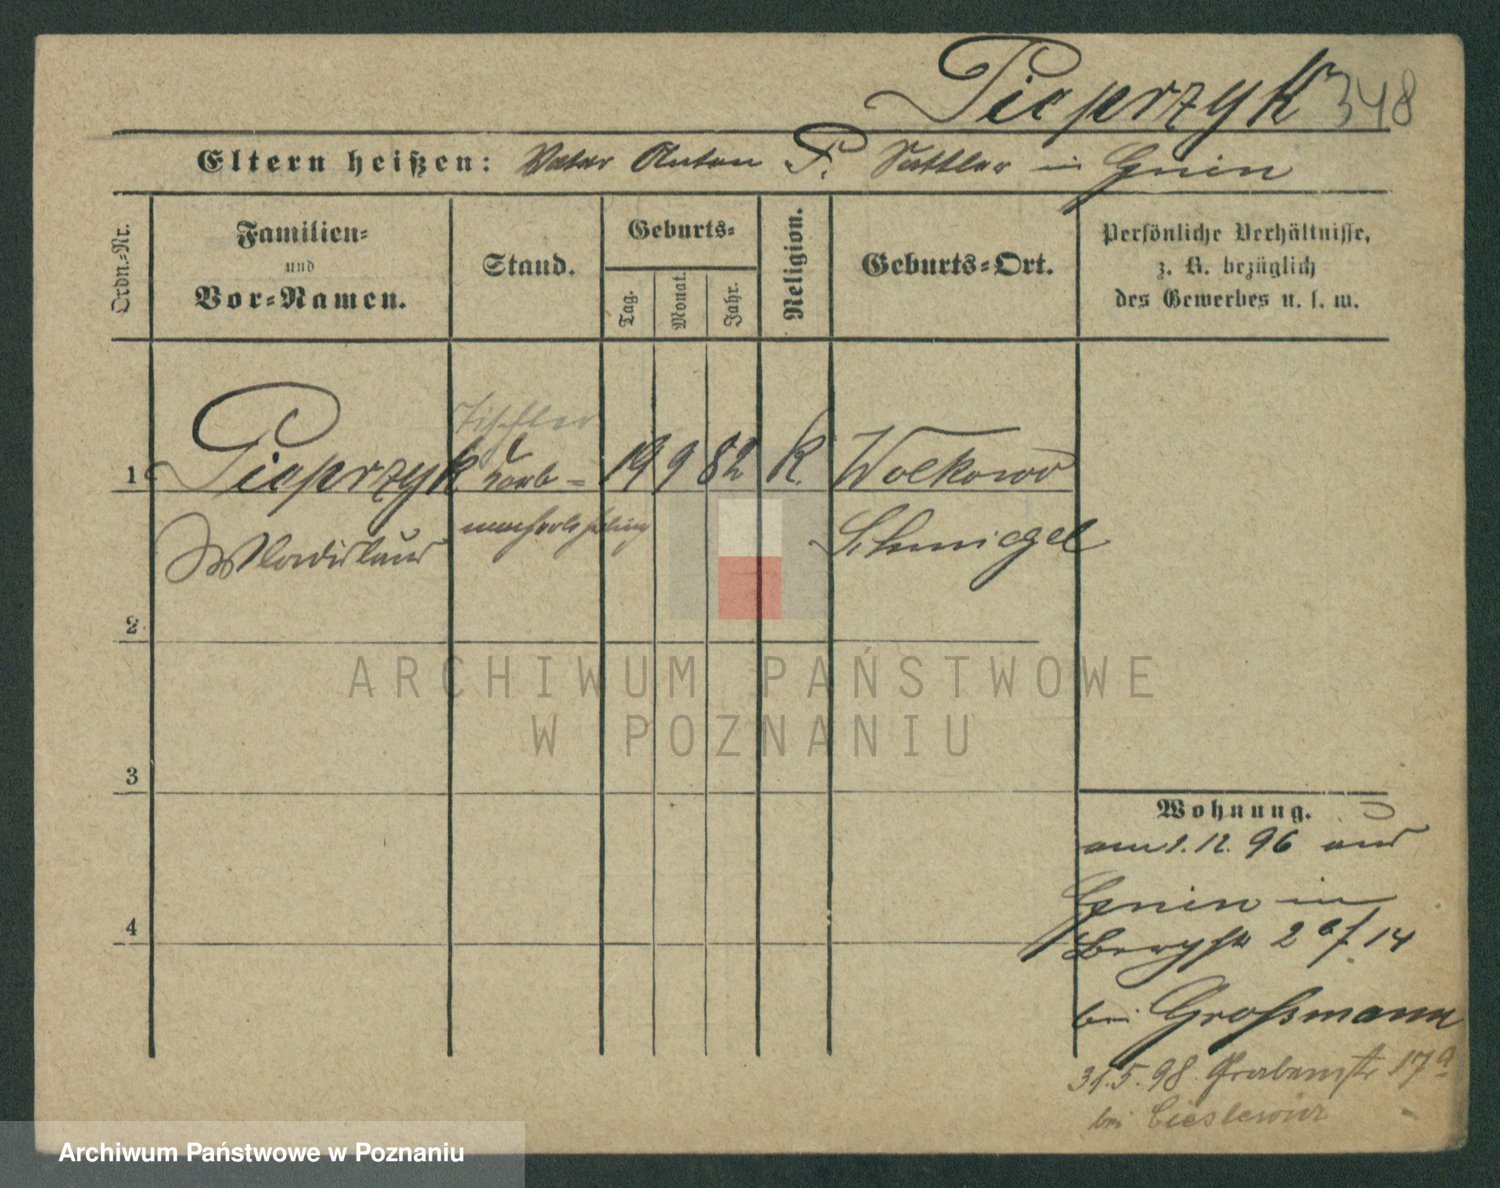 Pieprzyk 348
Eltern heißen: Vater Anton P. Sattler in Gnin
Ordn.-Nr.
Familien-
und
Vor-Namen.
Stand.
Geburts-
Tag.
Monat.
Jahr.
Religion.
Geburts-Ort.
Persönliche Verhältnisse,
z. B. bezüglich
des Gewerbes u. s. w.
Tischler
1 Pieprzyk Korb- 19 9 82 K. Wolkowo
Wladislaus macherlehrling Schmiegel
2
ARCHIWUM PAŃSTWOWE
W POZNANIU
3
Wohnung.
am 1. 12. 96 aus
4
Gnin in
Bergstr 2 a/14
bei Großmann
31.5.98 Grabenstr 17a
bei Cieslewicz
Archiwum Państwowe w Poznaniu